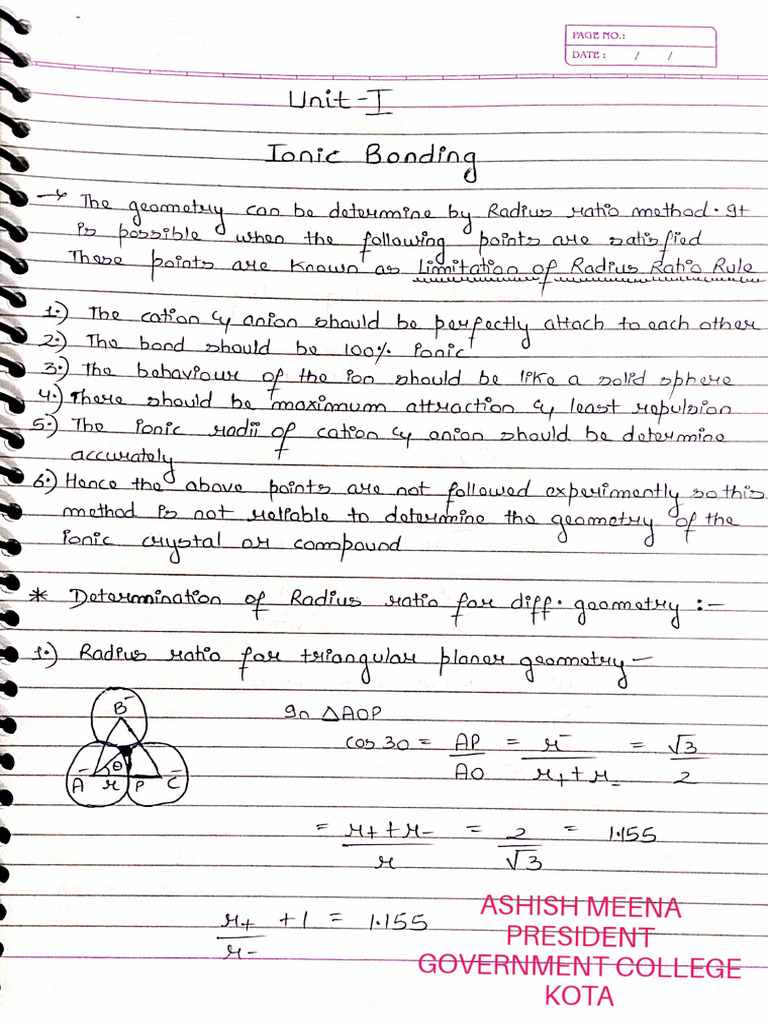 PAGE NO.:
DATE: / /
Unit-I
Ionic Bonding
→ The geometry can be determine by Radius ratio method. It
is possible when the following points are satisfied
These points are known as Limitation of Radius Ratio Rule
1.) The cation & anion should be perfectly attach to each other
2.) The bond should be 100% ionic
3.) The behaviour of the ion should be like a solid sphere
4.) There should be maximum attraction & least repulsion
5.) The ionic radii of cation & anion should be determine
accurately
6.) Hence the above points are not followed experimently so this
method is not reliable to determine the geometry of the
ionic crystal or compound
* Determination of Radius ratio for diff. geometry :-
1.) Radius ratio for triangular planer geometry-
B-
θ
- A r P C -
In △AOP
cos 30 = AP/AO = r-/r+ + r- = √3/2
= r+ + r-/r = 2/√3 = 1.155
r+/r- + 1 = 1.155
ASHISH MEENA
PRESIDENT
GOVERNMENT COLLEGE
KOTA